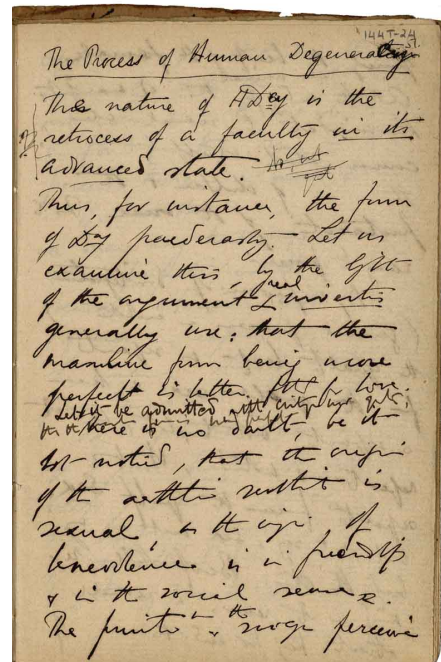 144T-24
51.
The Process of Human Degeneracy
The nature of H Dcy is the
retrocess of a faculty in its
advanced state.
Thus, for instance, the form
of Dcy paederasty. Let us
examine this, by the light
of the argument real inverts
generally use: that the
masculine form being more
perfect is better for love.
Let it be admitted
there is no doubt, be it
but noted, that the origin
of the aesthetic is
sexual, as the origin of
benevolence is in friendship
& in the social sense.
The perceive